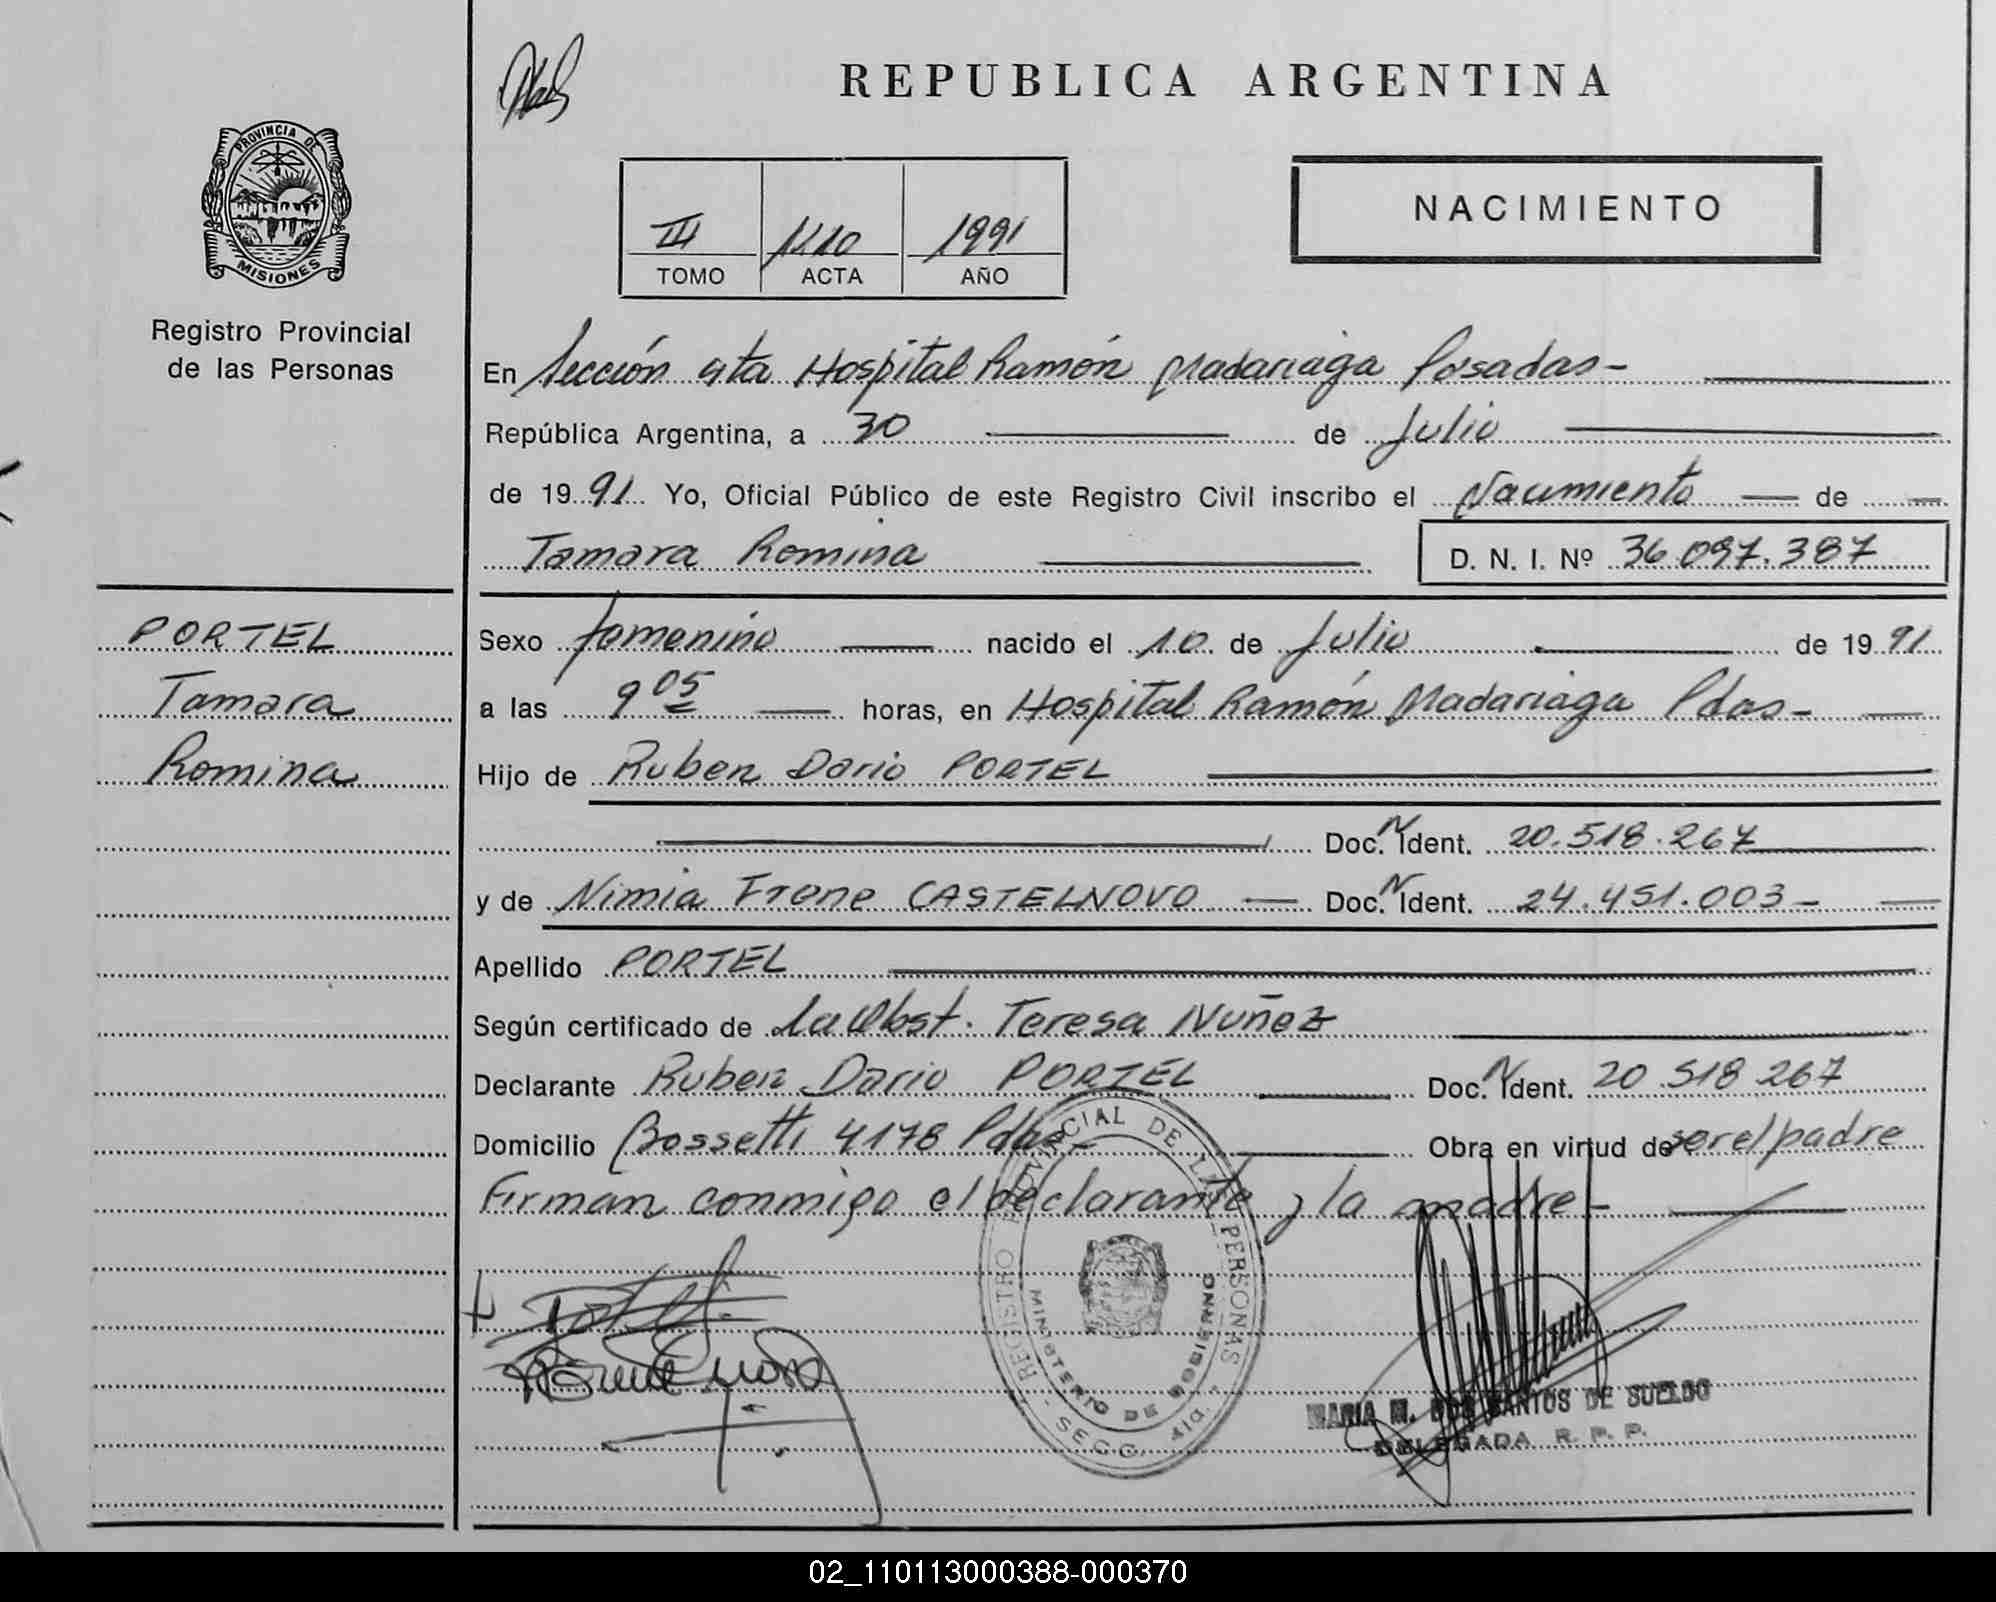 REPUBLICA ARGENTINA
PROVINCIA DE
MISIONES
Registro Provincial
de las Personas
III 1410 1991
TOMO ACTA AÑO
NACIMIENTO
En Sección 4ta Hospital Ramón Madariaga Posadas-
República Argentina, a 30 de Julio
de 1991 Yo, Oficial Público de este Registro Civil inscribo el Nacimiento de
Tamara Romina D. N. I. Nº 36.097.387
PORTEL
Tamara
Romina
Sexo femenino nacido el 10 de Julio de 1991
a las 9 05 horas, en Hospital Ramón Madariaga Pdas-
Hijo de Ruben Dario PORTEL
Doc. N Ident. 20.518.267
y de Nimia Irene CASTELNOVO Doc. N Ident. 24.451.003-
Apellido PORTEL
Según certificado de la Obst. Teresa Nuñez
Declarante Ruben Dario PORTEL Doc. N Ident. 20.518.267
Domicilio Bossetti 4178 Pdas- Obra en virtud de ser el padre
Firman conmigo el declarante y la madre-
REGISTRO PROVINCIAL DE LAS PERSONAS
MINISTERIO DE GOBIERNO
- SECC. 4ta. -
MARIA M. DOS SANTOS DE SUELDO
DELEGADA R. P. P.
02_110113000388-000370